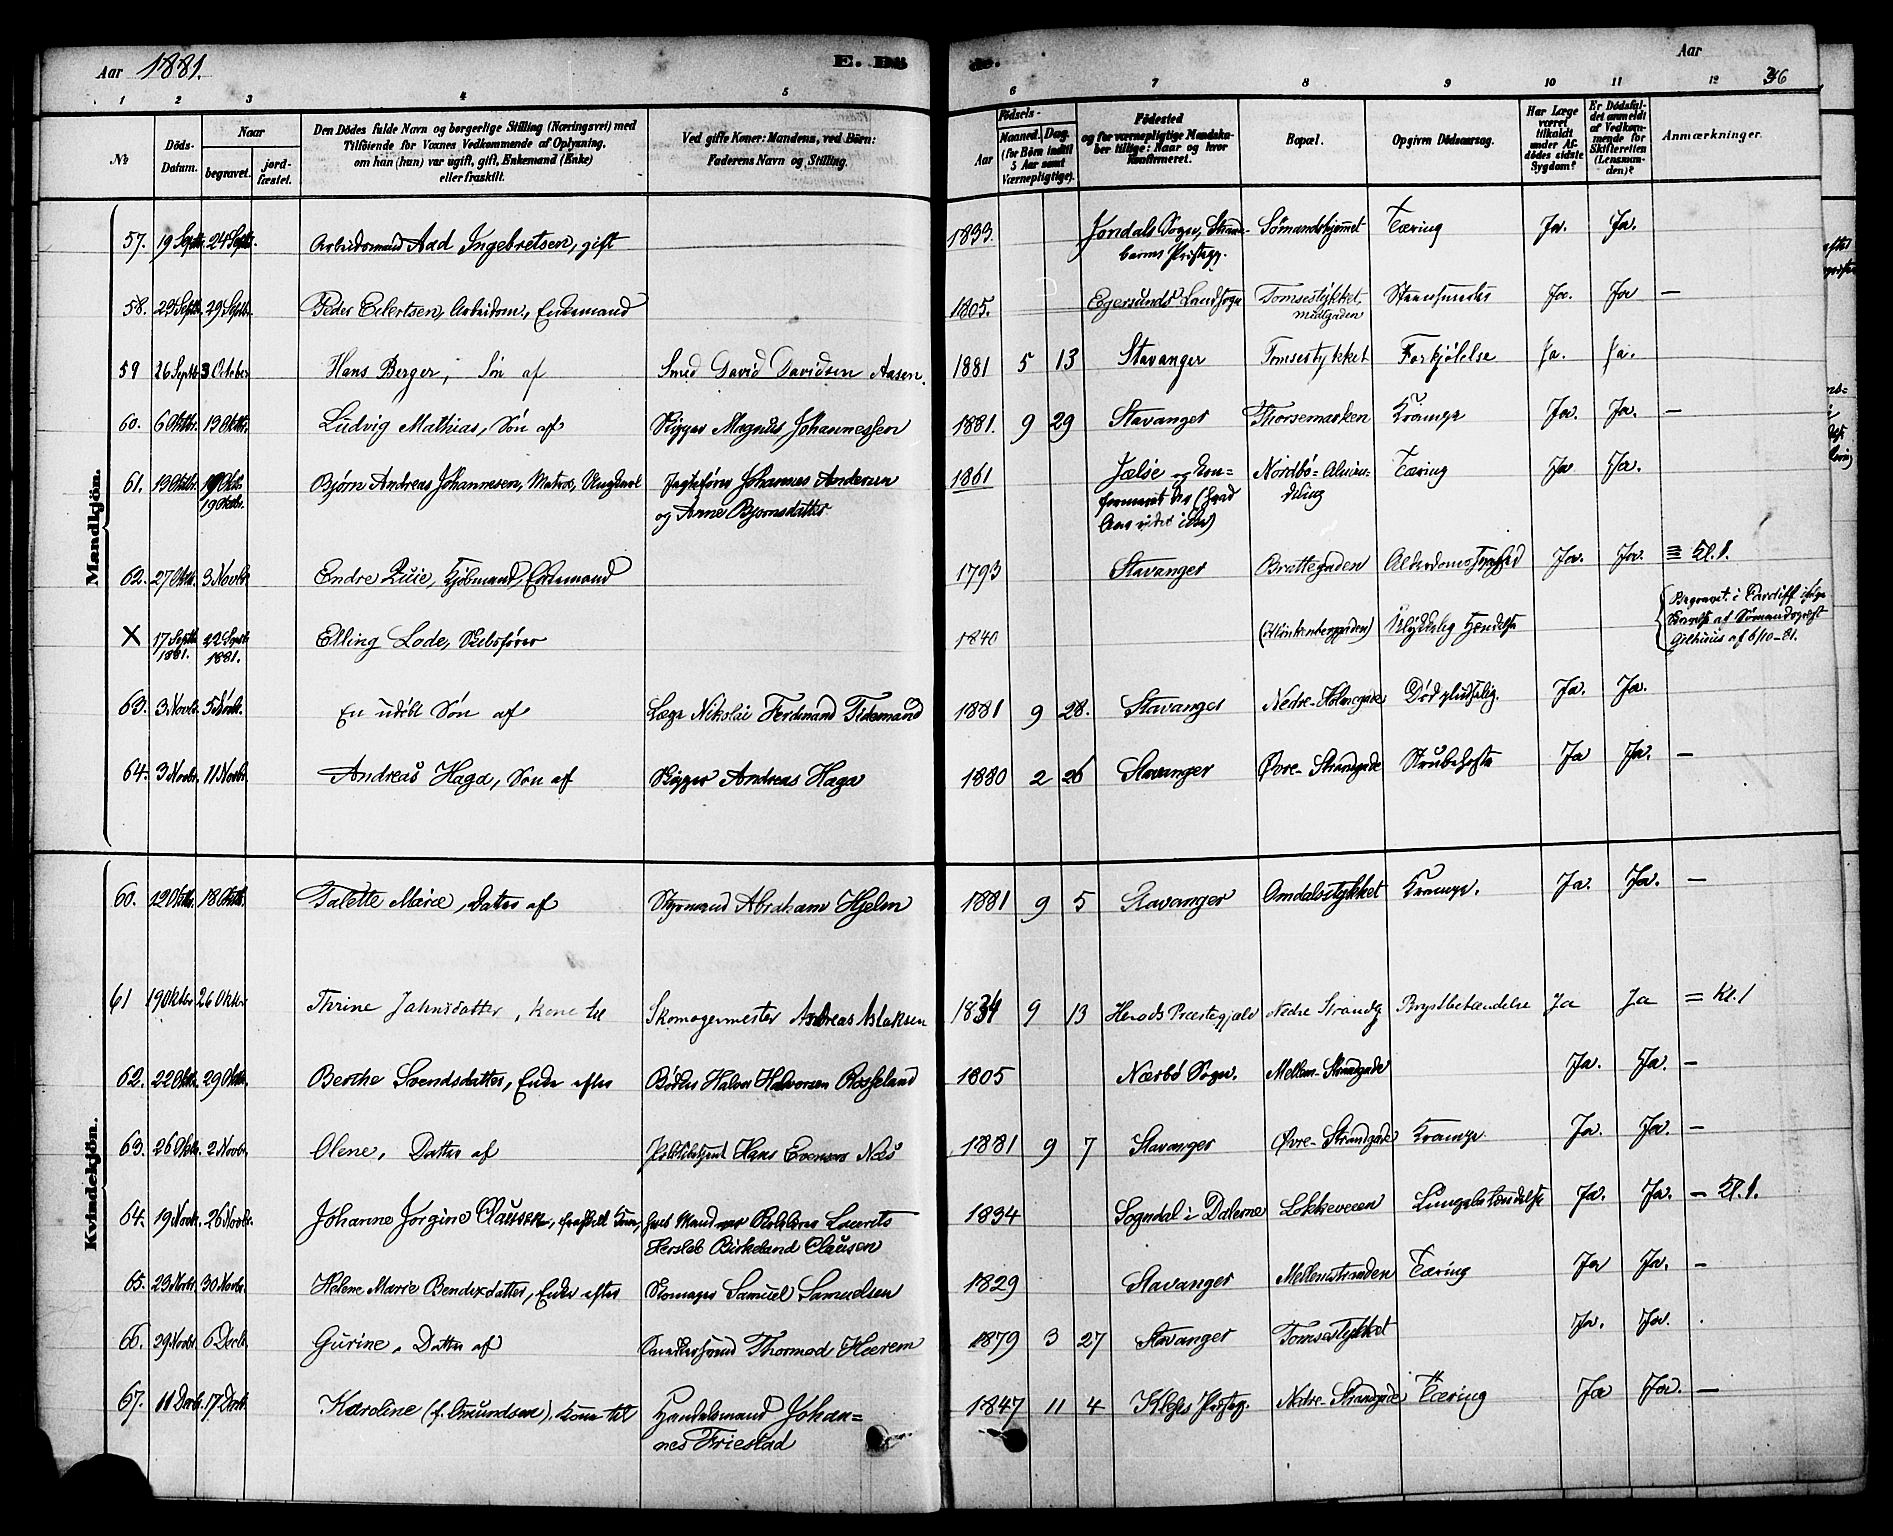 Aar 1881. E. Dö de. Aar 36
1 2 3 4 5 6 7 8 9 10 11 12
№ Döds-Datum. Naar begravet. jord-fæstet. Den Dödes fulde Navn og borgerlige Stilling (Næringsvei) med Tilföiende for Voxnes Vedkommende af Oplysning, om han (hun) var ugift, gift, Enkemand (Enke) eller fraskilt. Ved gifte Koner: Mandens, ved Börn: Faderens Navn og Stilling. Födsels- Aar Maaned. Dag. (for Börn indtil 5 Aar samt Værnepligtige). Födested og for værnepligtige Mandskaber tillige: Naar og hvor Konfirmeret. Bopæl. Opgiven Dödsaarsag. Har Læge været tilkaldt under Afdödes sidste Sygdom? Er Dödsfaldet anmeldt af Vedkommende for Skifteretten (Lensmanden)? Anmærkninger.
Mandkjön.
57. 19 Septr. 24 Septr. Arbeidsmand Aad Ingebretsen, gift 1833. Jondals Sogn, Strandebarms Præstegj. Sømandshjemmet Tæring Ja. Ja.
58. 23 Septr. 29 Septr. Peder Eilertsen, Arbeidsm., Enkemand 1805. Egersunds Landsogn Tomsestykket Ja. Ja —
59 26 Septr. 3 October Hans Berger, Søn af Smed David Davidsen Aasen. 1881 5 13 Stavanger Tomsestykket Forkjølelse Ja. Ja.
60. 6 Oktbr. 13 Oktbr. Ludvig Mathias, Søn af Skipper Magnus Johannessen 1881. 9 29 Stavanger Thorsemarken Krampe Ja. Ja. —
61. 13 Oktbr. 19 Oktbr. Bjørn Andreas Johannesen, Matros, Ungkarl Jagtefører Johannes Andersen 1861 Jælse og Kon- Nordbø- Tæring Ja Ja.
19 Oktbr. og Anne Bjørnsdatter
62. 27 Oktbr. 3 Novbr. Endre Qvie, Kjøbmand, Enkemand 1793 Stavanger Brattegaden Alderdomssvaghed Ja. Ja. Kl. 1.
X 17 Septb. 1881. 22 Septb. 1881. Elling Lode, Skibsfører 1840 Ulykkelig Hændelse Begravet i Cardiff ifølge Bevis af Sømandspræst Gjelhuus af 6/10-81.
63. 3 Novbr. 5 Novb. En udøbt Søn af Læge Nikolai Ferdinand Tidemand 1881 9 28. Stavanger Nedre-Holmegade Død pludselig. Ja. Ja.
64. 3 Novbr. 11 Novbr. Andreas Haga, Søn af Skipper Andreas Haga 1880 2 26 Stavanger Øvre-Strandgade Strubehoste Ja Ja. —
Kvindekjön.
60. 12 Oktb. 18 Oktb. Talette Marie, Datter af Styrmand Abraham Hjelm 1881 9 5 Stavanger Omdalsstykket Krampe. Ja. Ja. —
61 19 Oktbr 26 Oktbr Thrine Jahnsdatter, kone til Skomagermester Andreas Aslaksen 1834 9 13 Herøds Præstegjæld Nedre Strandg. Brystbetændelse Ja Ja = Kl. 1
62. 22 Oktb. 29 Oktb. Berthe Svendsdatter, Enke efter Bødker Halvor Halvorsen Rosseland 1805 Nærbø Sogn. Mellem-Strandgade Ja. Ja. —
63. 26 Oktb. 2 Novbr. Olene, Datter af Politibetjent Hans Evensen Næs 1881 9 7 Stavanger Øvre-Strandgade Krampe Ja. Ja. —
64. 19 Novb. 26 Novbr. Johanne Jørgine Clausen, fraskilt Kone, 1834 Sogndal i Dalerne Løkkeveien Lungebetændelse Ja. Ja. — Kl. 1.
Hersleb Birkeland Clausen
65. 23 Novbr. 30 Novbr. Helene Marie Bendixdatter, Enke efter Skomager Samuel Samuelsen 1829 Stavanger Mellemstranden Tæring Ja Ja. —
66. 29 Novbr. 6 Decb. Gurine, Datter af Snedkersvend Thormod Heerem 1879 3 27 Stavanger Tomsestykket Ja. Ja. .
67. 11 Decbr. 17 Decb. Karoline (f. Omundsen), Kone til Handelsmand Johan- 1847 11 4 Kleps Præsteg. Nedre-Strandgade Tæring Ja Ja. —
nes Friestad